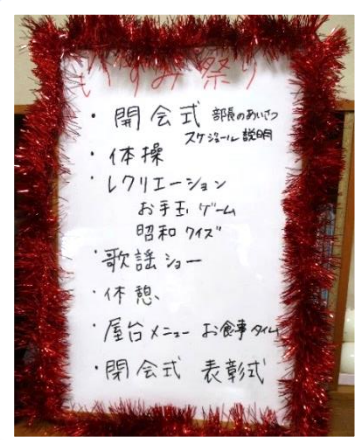 くすみ祭り
・開会式 部長のあいさつ
スケジュール説明
・体操
・レクリエーション
お手玉ゲーム
昭和クイズ
・歌謡ショー
・休憩、
・屋台メニュー お食事タイム
・閉会式 表彰式